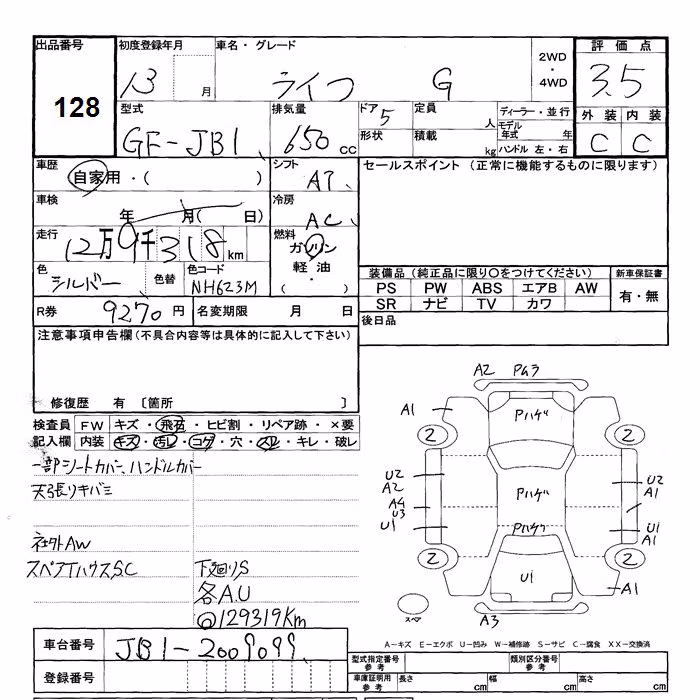 出品番号 初度登録年月 車名・グレード 2WD ・ 4WD 評価点
128 13 月 ライフ G 3.5
型式 排気量 ドア 5 定員 人 ディーラー・並行 外装 内装
GF-JB1 650 cc 形状 積載 kg モデル年式 年 C C
ハンドル 左・右
車歴 自家用・( ) シフト AT セールスポイント (正常に機能するものに限ります)
車検 年 月( 日) 冷房 AC
走行 12万9千318km 燃料 ガソリン・軽油・( )
色 シルバー 色替 色コード NH623M
装備品(純正品に限り○をつけてください) 新車保証書
PS PW ABS エアB AW 有・無
SR ナビ TV カワ
R券 9270円 名変期限 月 日 後日品
注意事項申告欄(不具合内容等は具体的に記入して下さい)
修復歴 有 〔箇所 〕
検査員 FW キズ・飛石・ヒビ割・リペア跡・×要
記入欄 内装 キズ・汚レ・コゲ・穴・スレ・キレ・破レ
一部シートカバー、ハンドルカバー
天張りキバミ
社外AW
スペアTハウスS.C 下廻りS
各A.U
@129319Km
A2 Pムラ
A1 Pハゲ
2 2
U2 A2 Pハゲ U2 A1
A4 U3
U1 Pハゲ U1 A1
2 2
U1 A1
スペア A3
車台番号 JB1-2009099
登録番号
A-キズ E-エクボ U-凹み W-補修跡 S-サビ C-腐食 XX-交換済
型式指定番号 参考 類別区分番号 参考
車庫証明用 参考 長さ cm 幅 cm 高さ cm